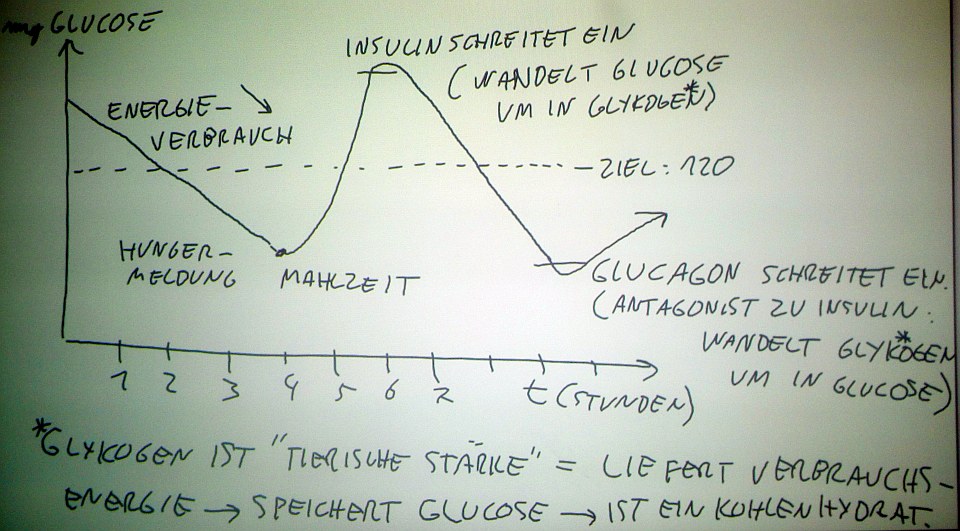 mg GLUCOSE
INSULIN SCHREITET EIN
(WANDELT GLUCOSE
UM IN GLYKOGEN*)
ENERGIE-
VERBRAUCH
ZIEL: 120
HUNGER-
MELDUNG
MAHLZEIT
GLUCAGON SCHREITET EIN.
(ANTAGONIST ZU INSULIN:
WANDELT GLYKOGEN*
UM IN GLUCOSE)
1 2 3 4 5 6 7 t (STUNDEN)
*GLYKOGEN IST "TIERISCHE STÄRKE" = LIEFERT VERBRAUCHS-
ENERGIE → SPEICHERT GLUCOSE → IST EIN KOHLENHYDRAT.